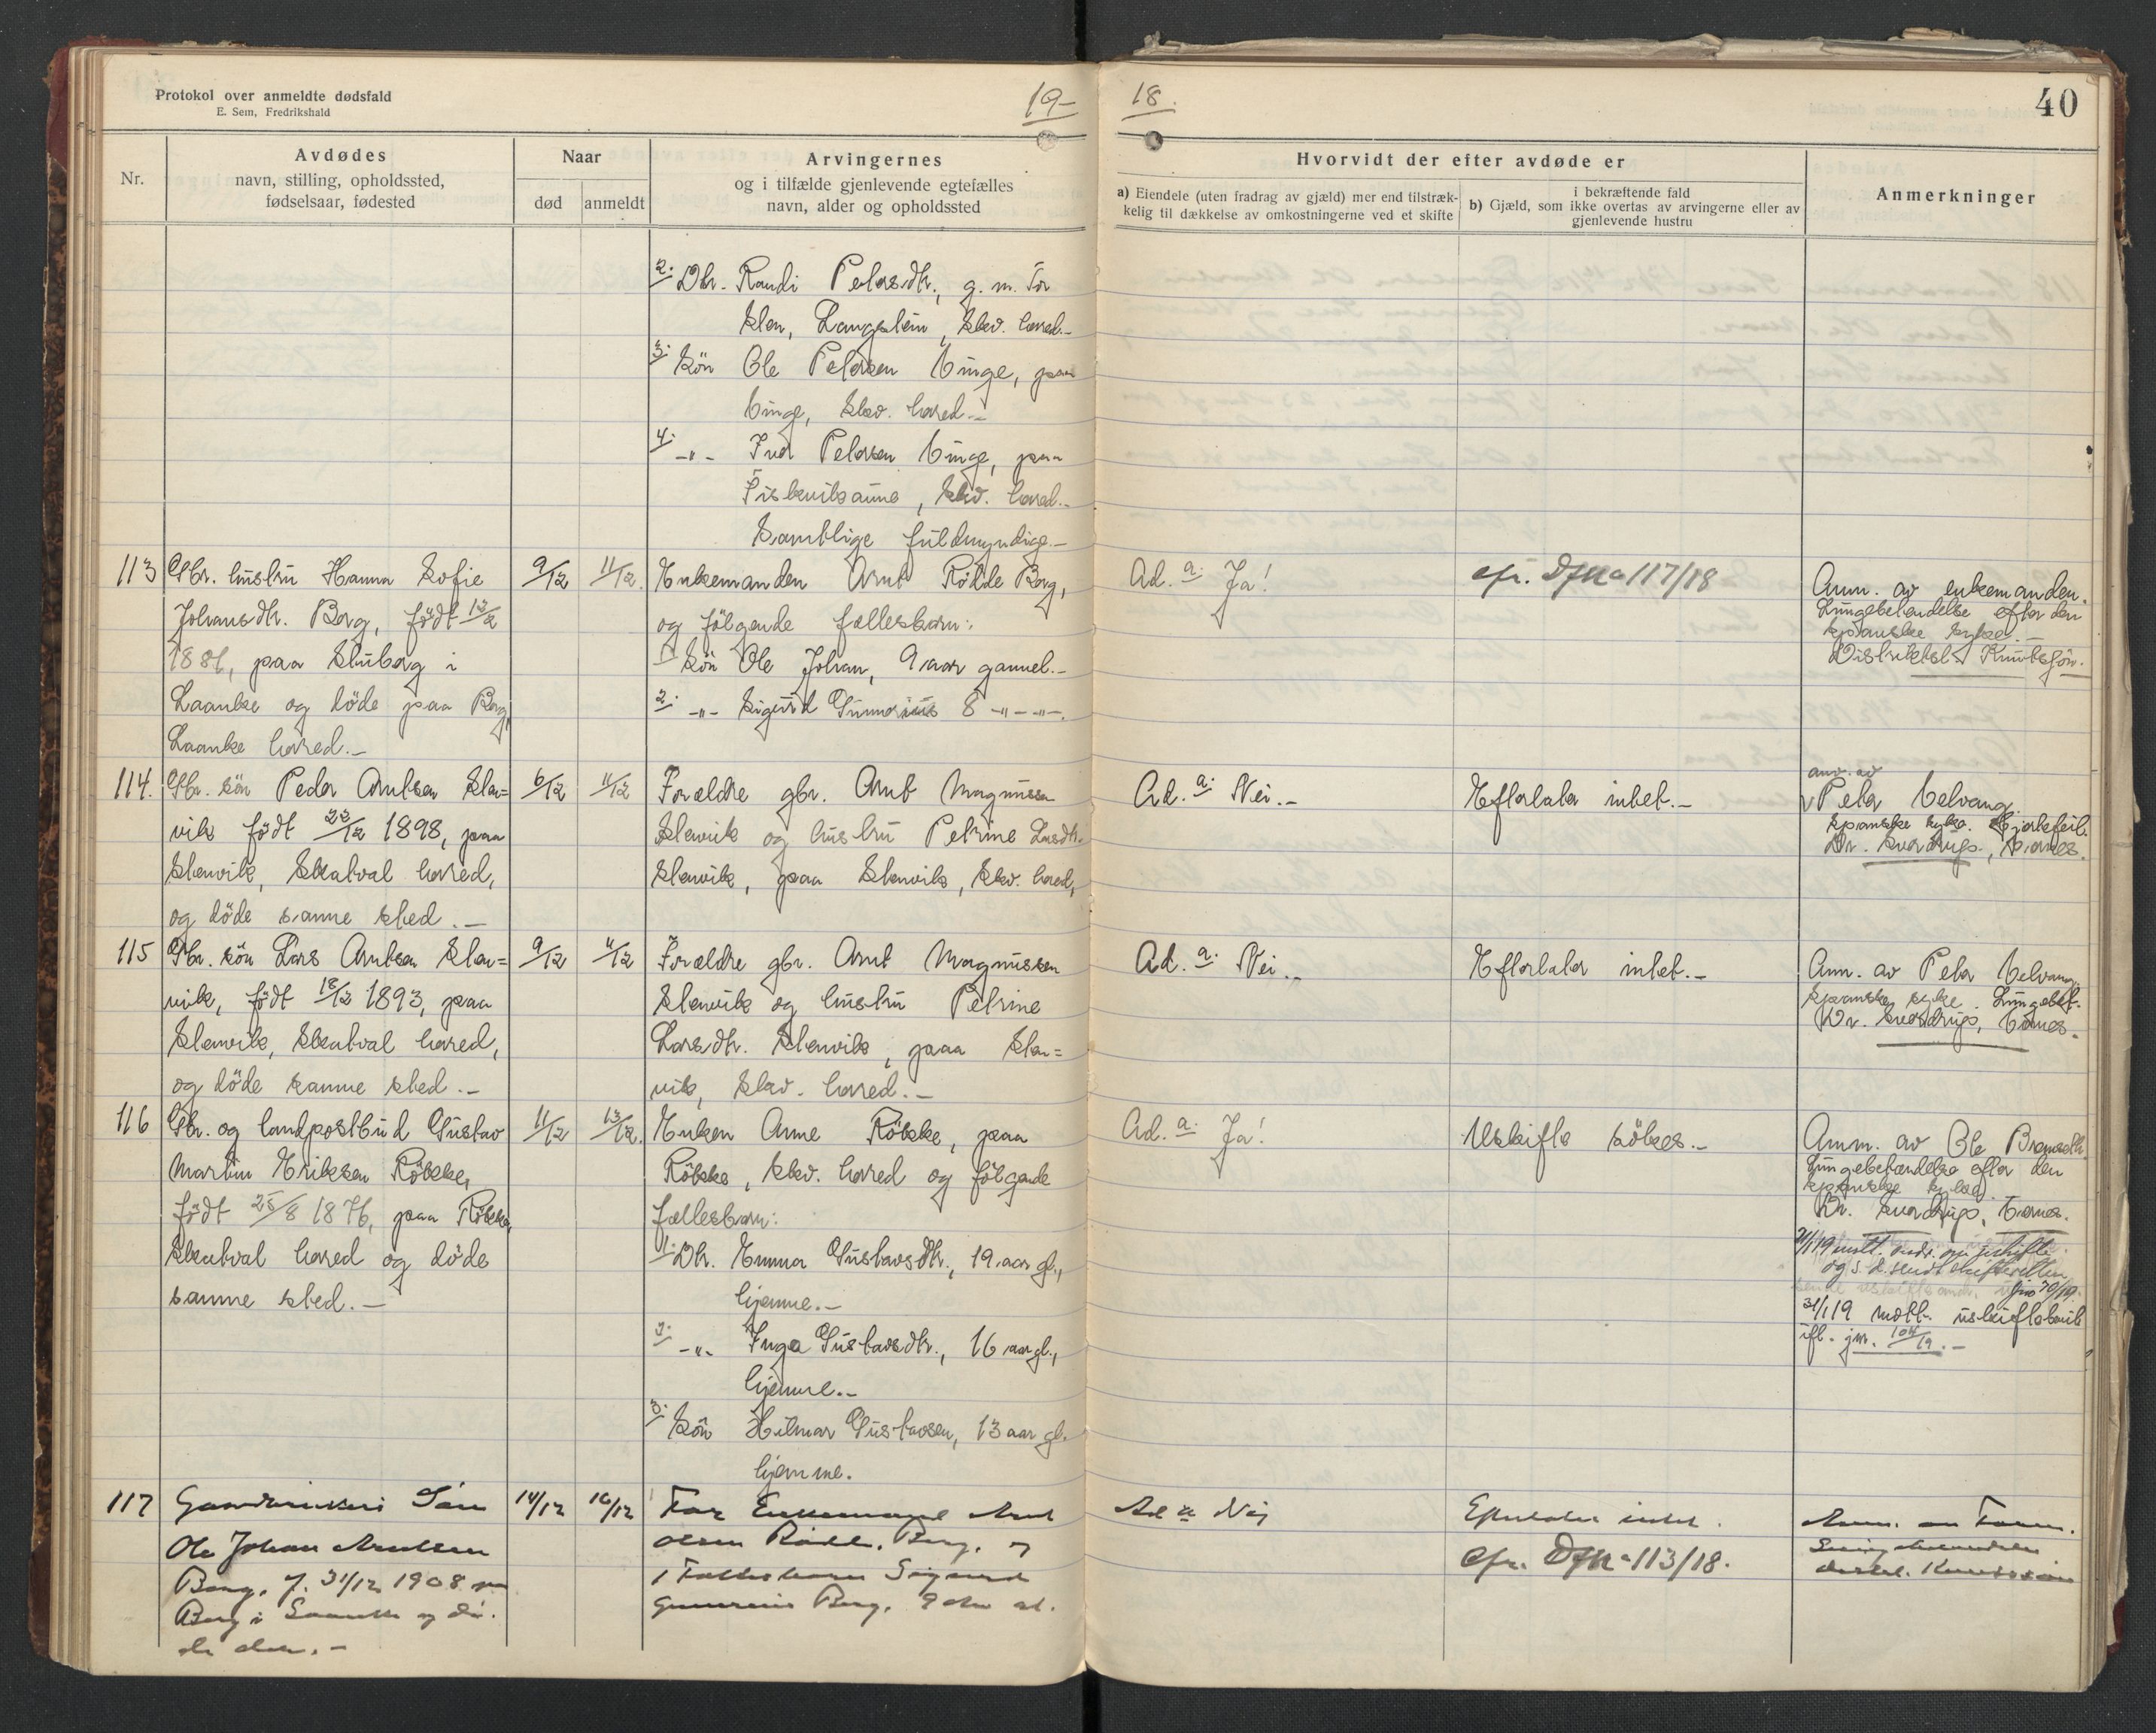 Protokol over anmeldte dødsfald
E. Sem, Fredrikshald
19-
18.
40
Nr.
Avdødes
navn, stilling, opholdssted,
fødselsaar, fødested
Naar
død
anmeldt
Arvingernes
og i tilfælde gjenlevende egtefælles
navn, alder og opholdssted
Hvorvidt der efter avdøde er
a) Eiendele (uten fradrag av gjæld) mer end tilstræk-
kelig til dækkelse av omkostningerne ved et skifte
i bekræftende fald
b) Gjæld, som ikke overtas av arvingerne eller av
gjenlevende hustru
Anmerkninger
2: Dtr. Randi Petersdtr., g. m. Tor
Sten, Langstein, Skv. hered.-
3: Sön Ole Petersen Vinge, paa
Vinge, Skv. hered.-
4: -"- Ivar Petersen Vinge, paa
Fiskviksaune, Skv. hered.-
Samtlige fuldmyndige.-
113
Gbr. hustru Hanna Sofie
Johansdtr. Berg, födt 13/2
1881, paa Stuberg i
Laanke og döde paa Berg,
Laanke hered.-
9/12
11/12.
Enkemanden Arnt Rölde Berg,
og fölgende fællesbarn:
1: Sön Ole Johan, 9 aar gammel.-
2: -"- Sigurd Gunnerius 8 -"- -"-.
Ad. a: Ja!
cfr. Dfn 117/18
Anm. av enkemanden.
Lungebetændelse efter den
spanske syke.-
Distriktsl. Knutsjön.
114.
Gbr. sön Peder Arntsen Sten=
vik födt 22/12 1898, paa
Stenvik, Skatval hered,
og döde samme sted.-
6/12
11/12
Forældre gbr. Arnt Magnussen
Stenvik og hustru Petrine Larsdtr.
Stenvik, paa Stenvik, Skv. hered,
Ad. a: Nei.-
Efterlater intet.-
anv. av
Peter Velvang.
Spanske syke. Hjertefeil.
Dr. Sverdrup,Værnes.
115
Gbr. sön Lars Arntsen Sten=
vik, födt 18/2 1893, paa
Stenvik, Skatval hered,
og döde samme sted.-
9/12
11/12
Forældre gbr. Arnt Magnussen
Stenvik og hustru Petrine
Larsdtr. Stenvik, paa Sten=
vik, Skv. hered.-
Ad. a: Nei.-
Efterlater intet.-
Anm. av Peter Velvang,
Spanske syke. Lungebet.
Dr. Sverdrup, Værnes.
116
Gbr. og landpostbud Gustav
Martin Eriksen Rökke,
födt 25/8 1876, paa Rökke,
Skatval hered og döde
samme sted.-
11/12
13/12.
Enken Anne Rökke, paa
Rökke, Skv. hered og fölgende
fællesbarn:
1: Dtr. Emma Gustavsdtr., 19 aar gl.,
hjemme.-
2: -"- Inga Gustavsdtr., 16 aar gl.,
hjemme.-
3: Sön Hilmar Gustavsen, 13 aar gl.
hjemme.
Ad. a: Ja!
Uskifte sökes.-
Anm. av Ole
Lungebetændelse efter den
spanske syke.
Dr. Sverdrup, Værnes.
mott. andr. om uskifte
og s. d. sendt skifteretten
31/1 19 mott. uskiftebevil
ifl. jnr. 104/19.-
117
Gaardbrukers Sön
Ole Johan Arntsen
Berg, f. 31/12 1908 paa
Berg i Laanke og dö-
de der.-
14/12
16/12
Far Enkemand Arnt
Olsen Rölde, Berg, og
1 Fællesbarn Sigurd
Gunnerius Berg, 9 aar gl.
Ad a Nei
Efterlater intet.
cfr. Dfn 113/18.
Anm. av Faren.
Lungebetændelse
distrl. Knutsjön